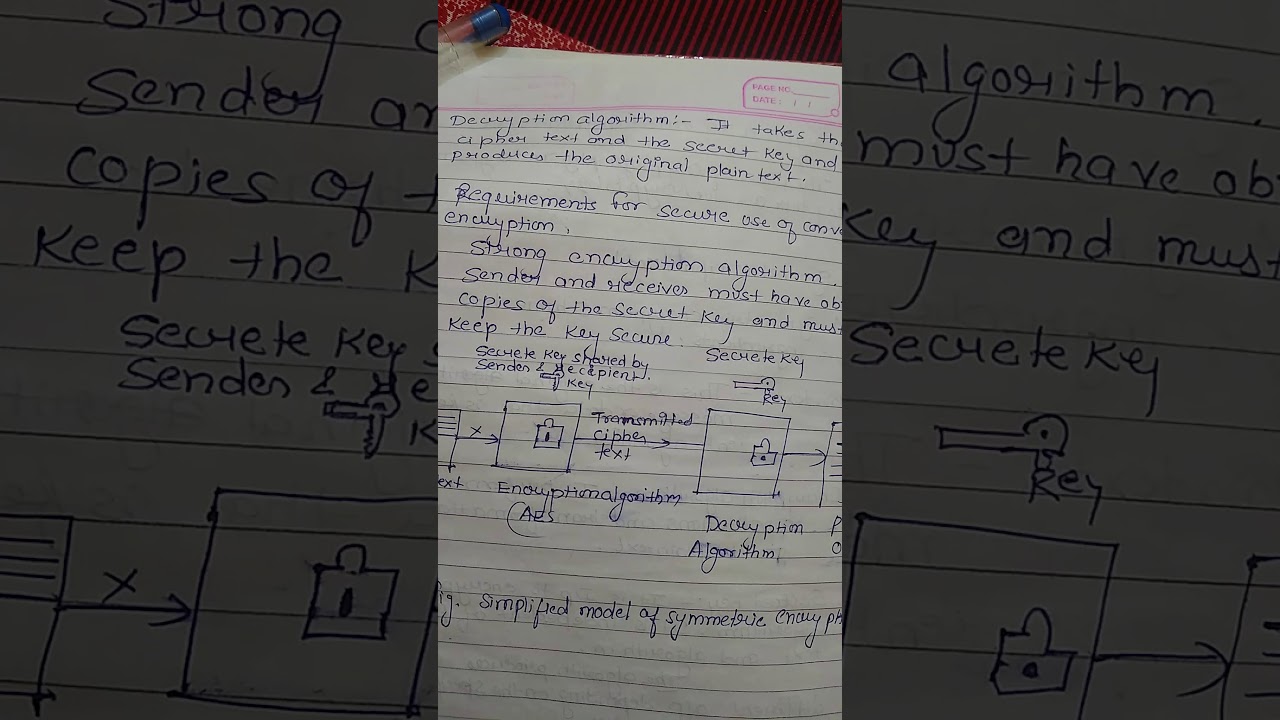 PAGE NO.
DATE: / /
Decryption algorithm:- It takes the
cipher text and the secret key and
produces the original plain text.
Requirements for secure use of conve
encryption.
Strong encryption algorithm.
Sender and receives must have obt
copies of the secret key and must
keep the key secure.
Secrete key shared by
Sender & recipient.
key
Secrete key
key
X
Transmitted
cipher
text
ext
Encryption algorithm
(AES
Decryption
Algorithm
P
O
ig. Simplified model of symmetric encryph
Strong
algorithm.
Sender an
must have ob
copies of t
key and must
keep the k
Secrete key s
Sender & re
k
Secrete key
key
X